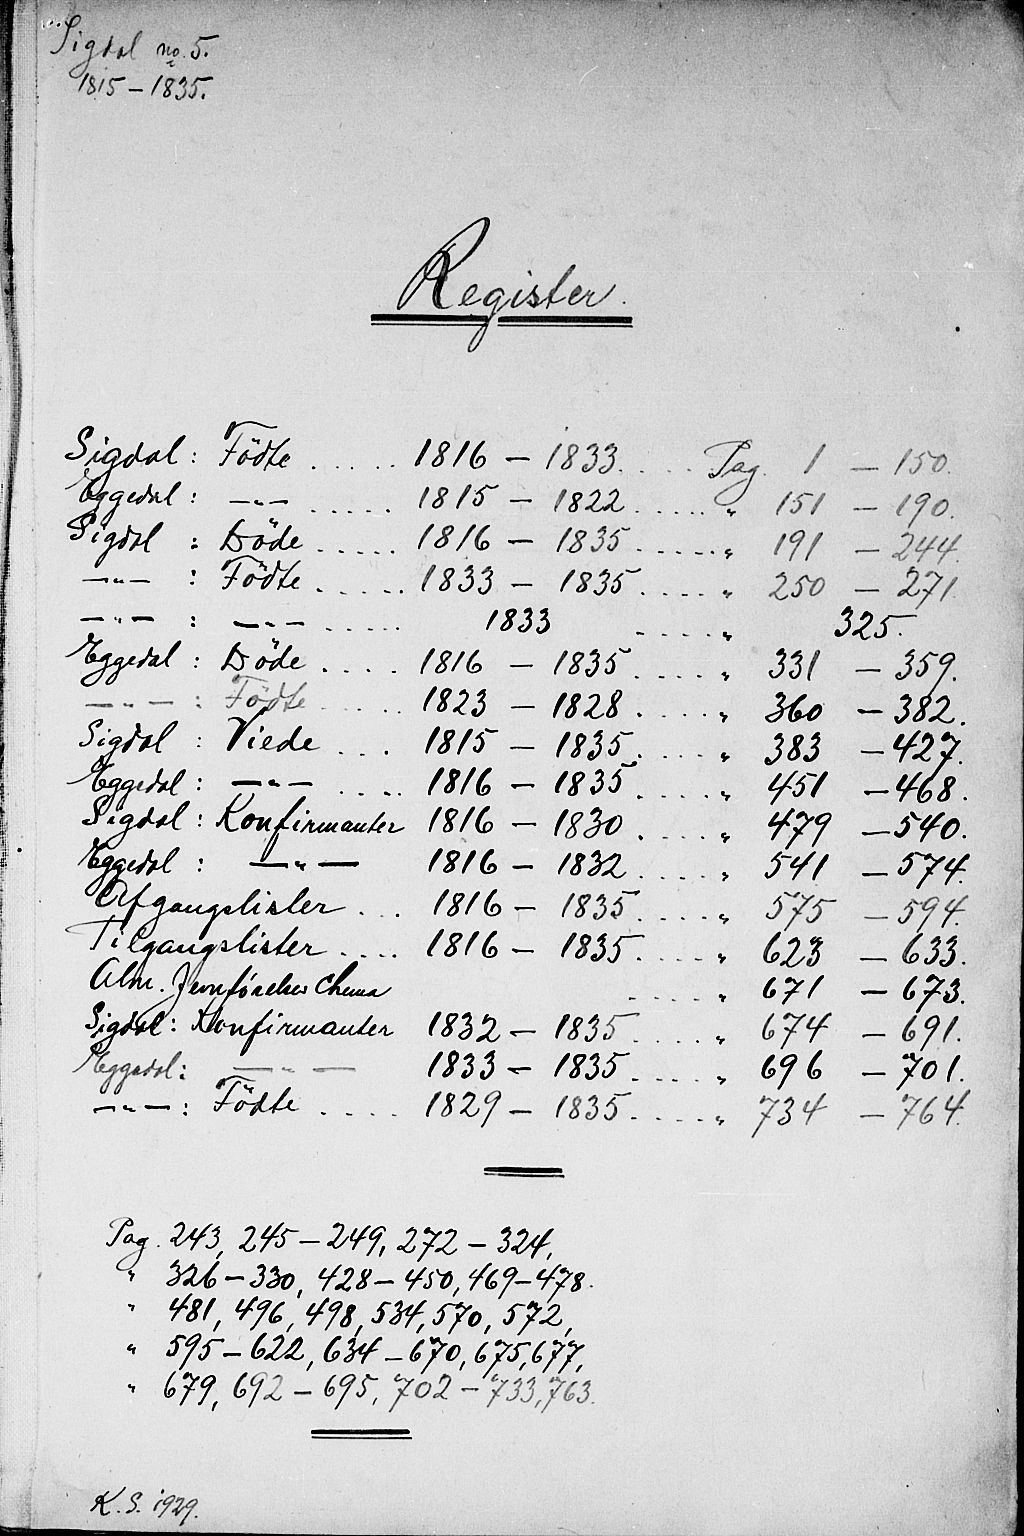 Sigdal no. 5.
1815 – 1835.
Register.
Sigdal : Födte ..... 1816 – 1833 ..... Pag. 1 – 150.
Eggedal : —„— ..... 1815 – 1822 ..... „ 151 – 190.
Sigdal : Döde ..... 1816 – 1835 ..... „ 191 – 244.
—„— : Födte ..... 1833 – 1835 ..... „ 250 – 271.
—„— : —„— ..... 1833 ..... „ 325.
Eggedal : Döde .... 1816 – 1835 ..... „ 331 – 359.
—„— : Födte ..... 1823 – 1828 ..... „ 360 – 382.
Sigdal : Viede .... 1815 – 1835 ..... „ 383 – 427.
Eggedal : —„— .... 1816 – 1835 ..... „ 451 – 468.
Sigdal : Konfirmanter 1816 – 1830 ..... „ 479 – 540.
Eggedal : —„— 1816 – 1832 ..... „ 541 – 574.
Afgangslister ... 1816 – 1835 ..... „ 575 – 594.
Tilgangslister .... 1816 – 1835 ..... „ 623 – 633.
Alm. Jevnförelses Chema ..... „ 671 – 673.
Sigdal : Konfirmanter 1832 – 1835 ..... „ 674 – 691.
Eggedal : —„— 1833 – 1835 ..... „ 696 – 701.
—„— : Födte .... 1829 – 1835 ..... „ 734 – 764.
Pag. 243, 245 – 249, 272 – 324,
„ 326 – 330, 428 – 450, 469 – 478.
„ 481, 496, 498, 534, 570, 572,
„ 595 – 622, 634 – 670, 675, 677,
„ 679, 692 – 695, 702 – 733, 763.
K. S. 1929.